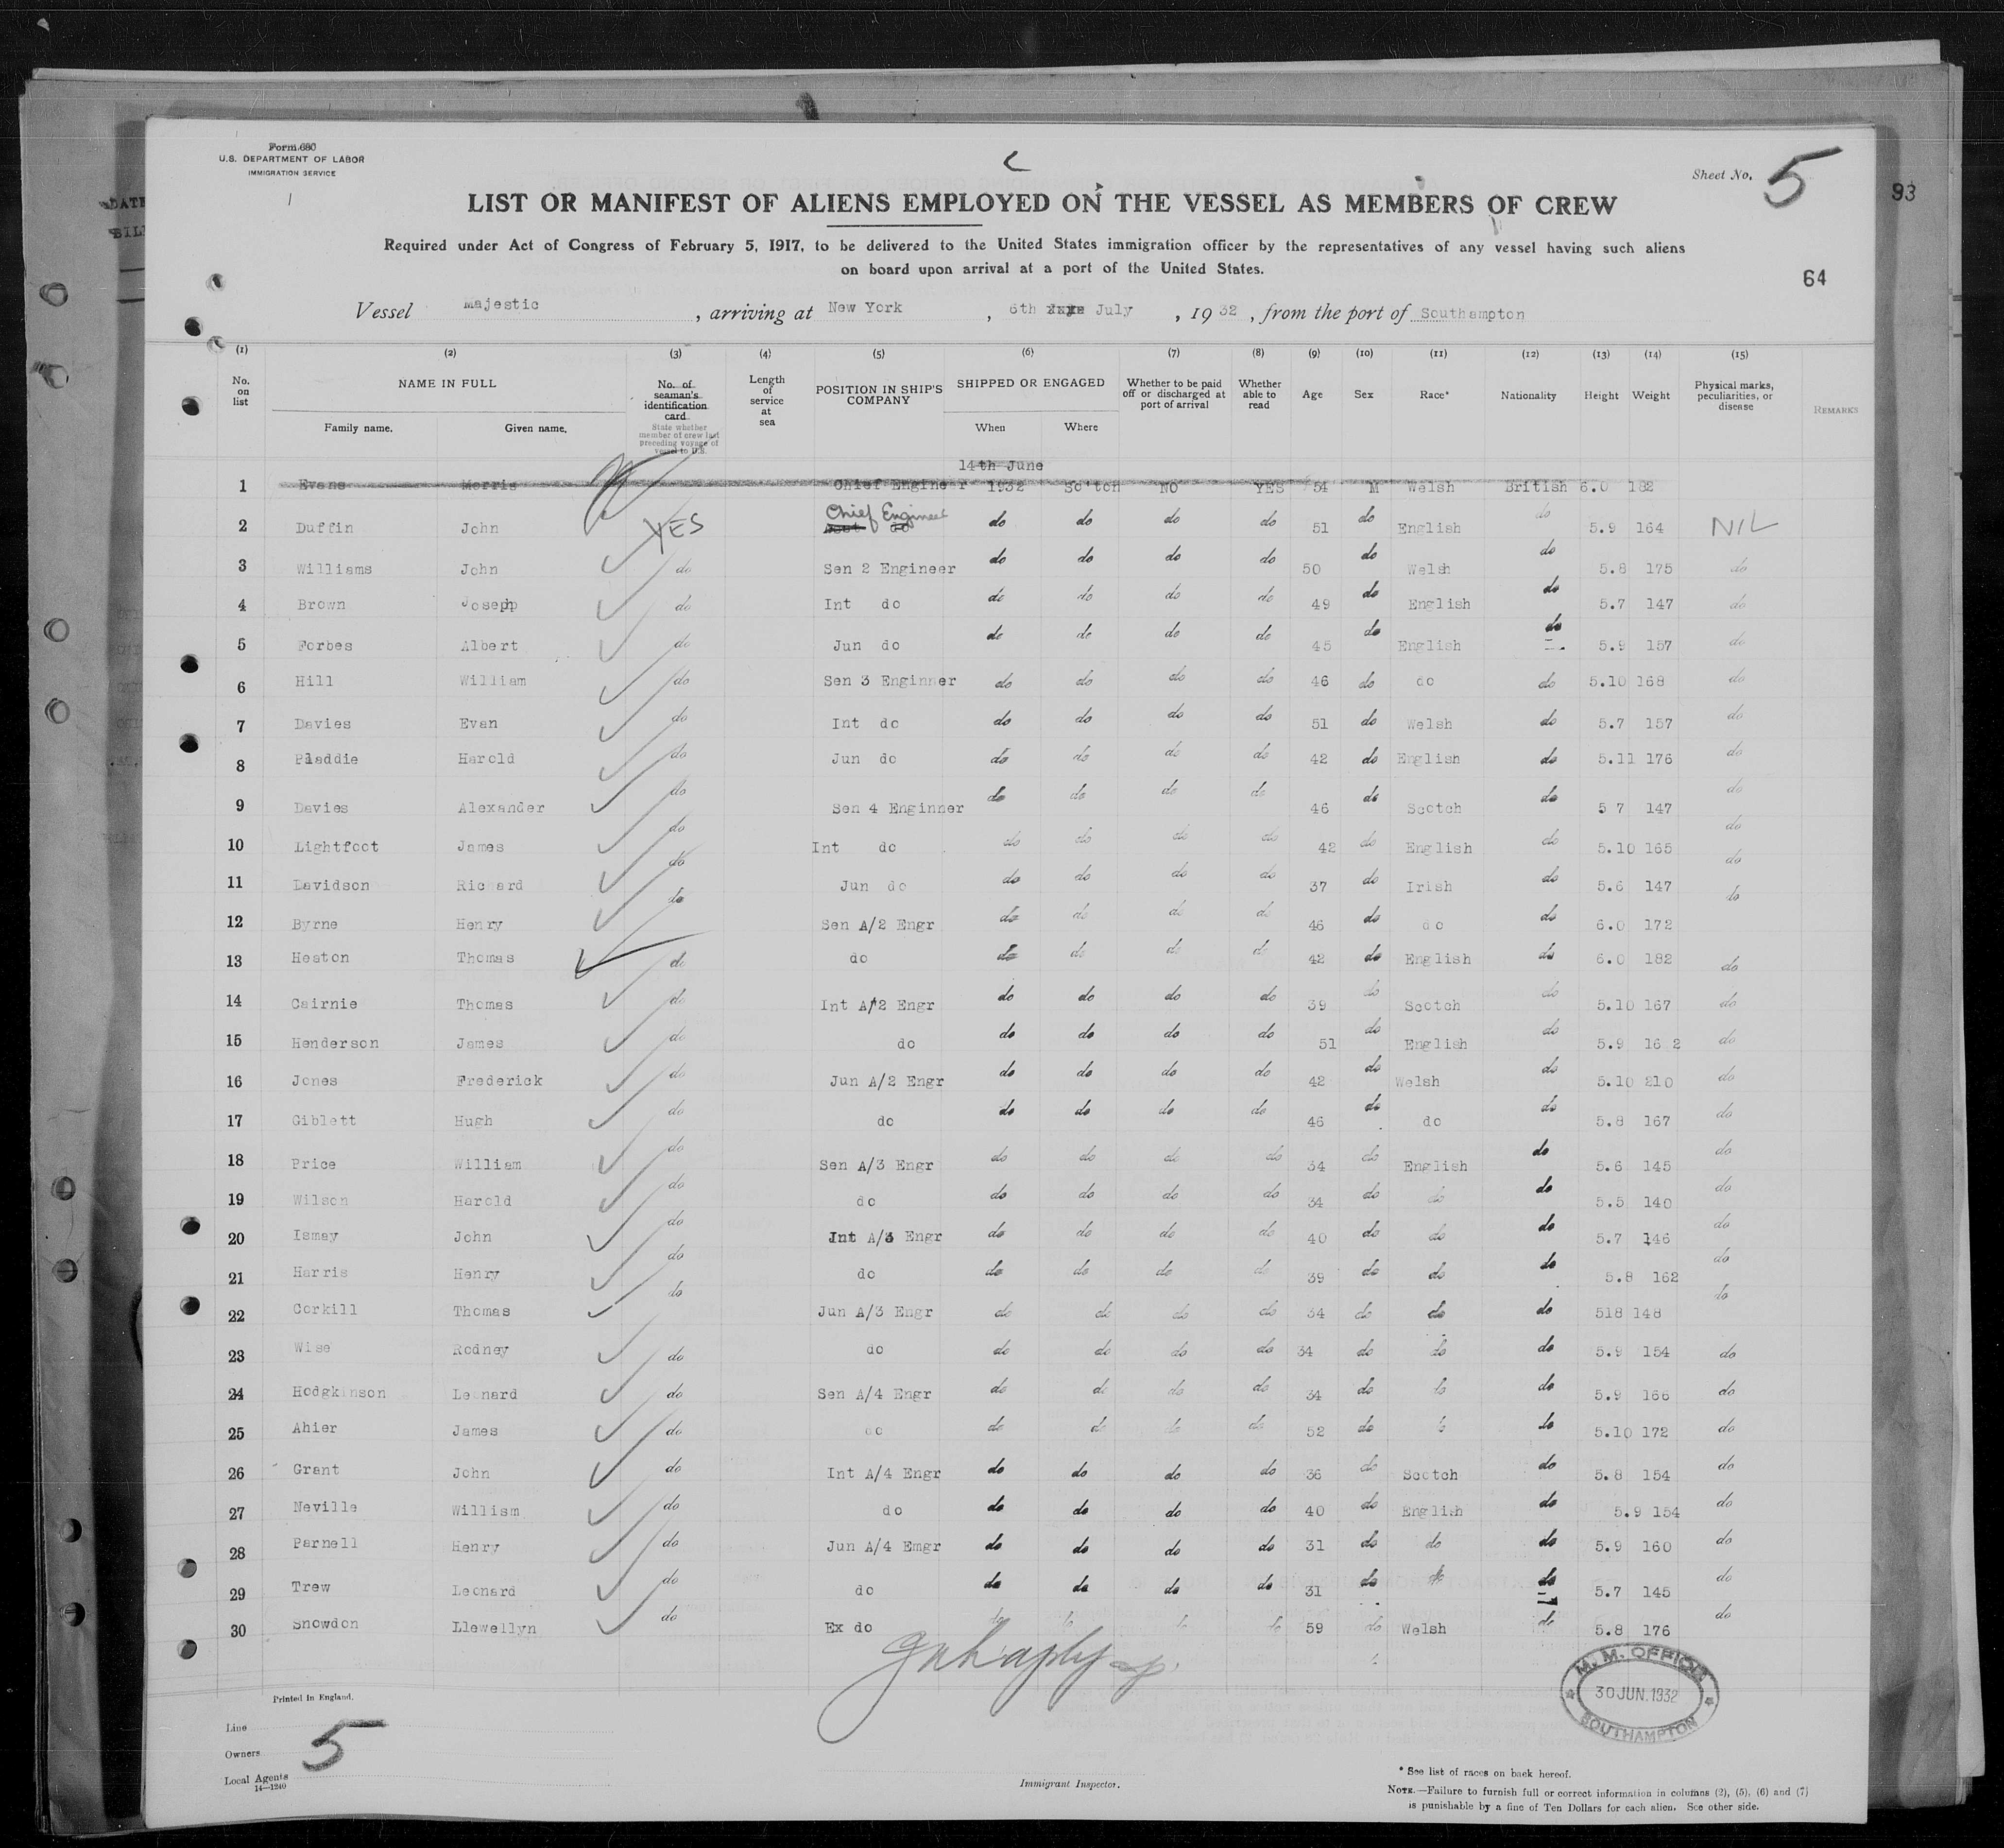 Form 680
U.S. DEPARTMENT OF LABOR
IMMIGRATION SERVICE
Sheet No. 5
93
LIST OR MANIFEST OF ALIENS EMPLOYED ON THE VESSEL AS MEMBERS OF CREW
Required under Act of Congress of February 5, 1917, to be delivered to the United States immigration officer by the representatives of any vessel having such aliens
on board upon arrival at a port of the United States.
64
Vessel Majestic, arriving at New York, 6th July, 1932, from the port of Southampton
(1) (2) (3) (4) (5) (6) (7) (8) (9) (10) (11) (12) (13) (14) (15)
No. on list NAME IN FULL Family name. Given name. No. of seaman's identification card State whether member of crew last preceding voyage of vessel to U.S. Length of service at sea POSITION IN SHIP'S COMPANY SHIPPED OR ENGAGED When Where Whether to be paid off or discharged at port of arrival Whether able to read Age Sex Race* Nationality Height Weight Physical marks, peculiarities, or disease REMARKS
14th June
1 Evans Morris Chief Engineer 1932 So'ton NO YES 54 M Welsh British 6.0 182
2 Duffin John YES Chief Engineer do do do do 51 do English do 5.9 164 NIL
3 Williams John do Sen 2 Engineer do do do do 50 do Welsh do 5.8 175 do
4 Brown Joseph do Int do do do do do 49 do English do 5.7 147 do
5 Forbes Albert do Jun do do do do do 45 do English do 5.9 157 do
6 Hill William do Sen 3 Enginner do do do do 46 do do do 5.10 168 do
7 Davies Evan do Int do do do do do 51 do Welsh do 5.7 157 do
8 Pladdie Harold do Jun do do do do do 42 do English do 5.11 176 do
9 Davies Alexander do Sen 4 Enginner do do do do 46 do Scotch do 5 7 147 do
10 Lightfoot James do Int do do do do do 42 do English do 5.10 165 do
11 Davidson Richard do Jun do do do do do 37 do Irish do 5.6 147 do
12 Byrne Henry do Sen A/2 Engr do do do do 46 do do do 6.0 172 do
13 Heaton Thomas do do do do do do 42 do English do 6.0 182 do
14 Cairnie Thomas do Int A/2 Engr do do do do 39 do Scotch do 5.10 167 do
15 Henderson James do do do do do do 51 do English do 5.9 16 2 do
16 Jones Frederick do Jun A/2 Engr do do do do 42 do Welsh do 5.10 210 do
17 Giblett Hugh do do do do do do 46 do do do 5.8 167 do
18 Price William do Sen A/3 Engr do do do do 34 do English do 5.6 145 do
19 Wilson Harold do do do do do do 34 do do do 5.5 140 do
20 Ismay John do Int A/3 Engr do do do do 40 do do do 5.7 146 do
21 Harris Henry do do do do do do 39 do do do 5.8 162 do
22 Corkill Thomas do Jun A/3 Engr do do do do 34 do do do 518 148 do
23 Wise Rodney do do do do do do 34 do do do 5.9 154 do
24 Hodgkinson Leonard do Sen A/4 Engr do do do do 34 do do do 5.9 166 do
25 Ahier James do do do do do do 52 do do do 5.10 172 do
26 Grant John do Int A/4 Engr do do do do 36 do Scotch do 5.8 154 do
27 Neville William do do do do do do 40 do English do 5.9 154 do
28 Parnell Henry do Jun A/4 Emgr do do do do 31 do do do 5.9 160 do
29 Trew Leonard do do do do do do 31 do do do 5.7 145 do
30 Snowdon Llewellyn do Ex do do do do do 59 do Welsh do 5.8 176 do
M. M. OFFICE
30 JUN. 1932
SOUTHAMPTON
Printed in England.
Line
Owners 5
Local Agents
14—1240
Immigrant Inspector.
* See list of races on back hereof.
NOTE.—Failure to furnish full or correct information in columns (2), (5), (6) and (7)
is punishable by a fine of Ten Dollars for each alien. See other side.